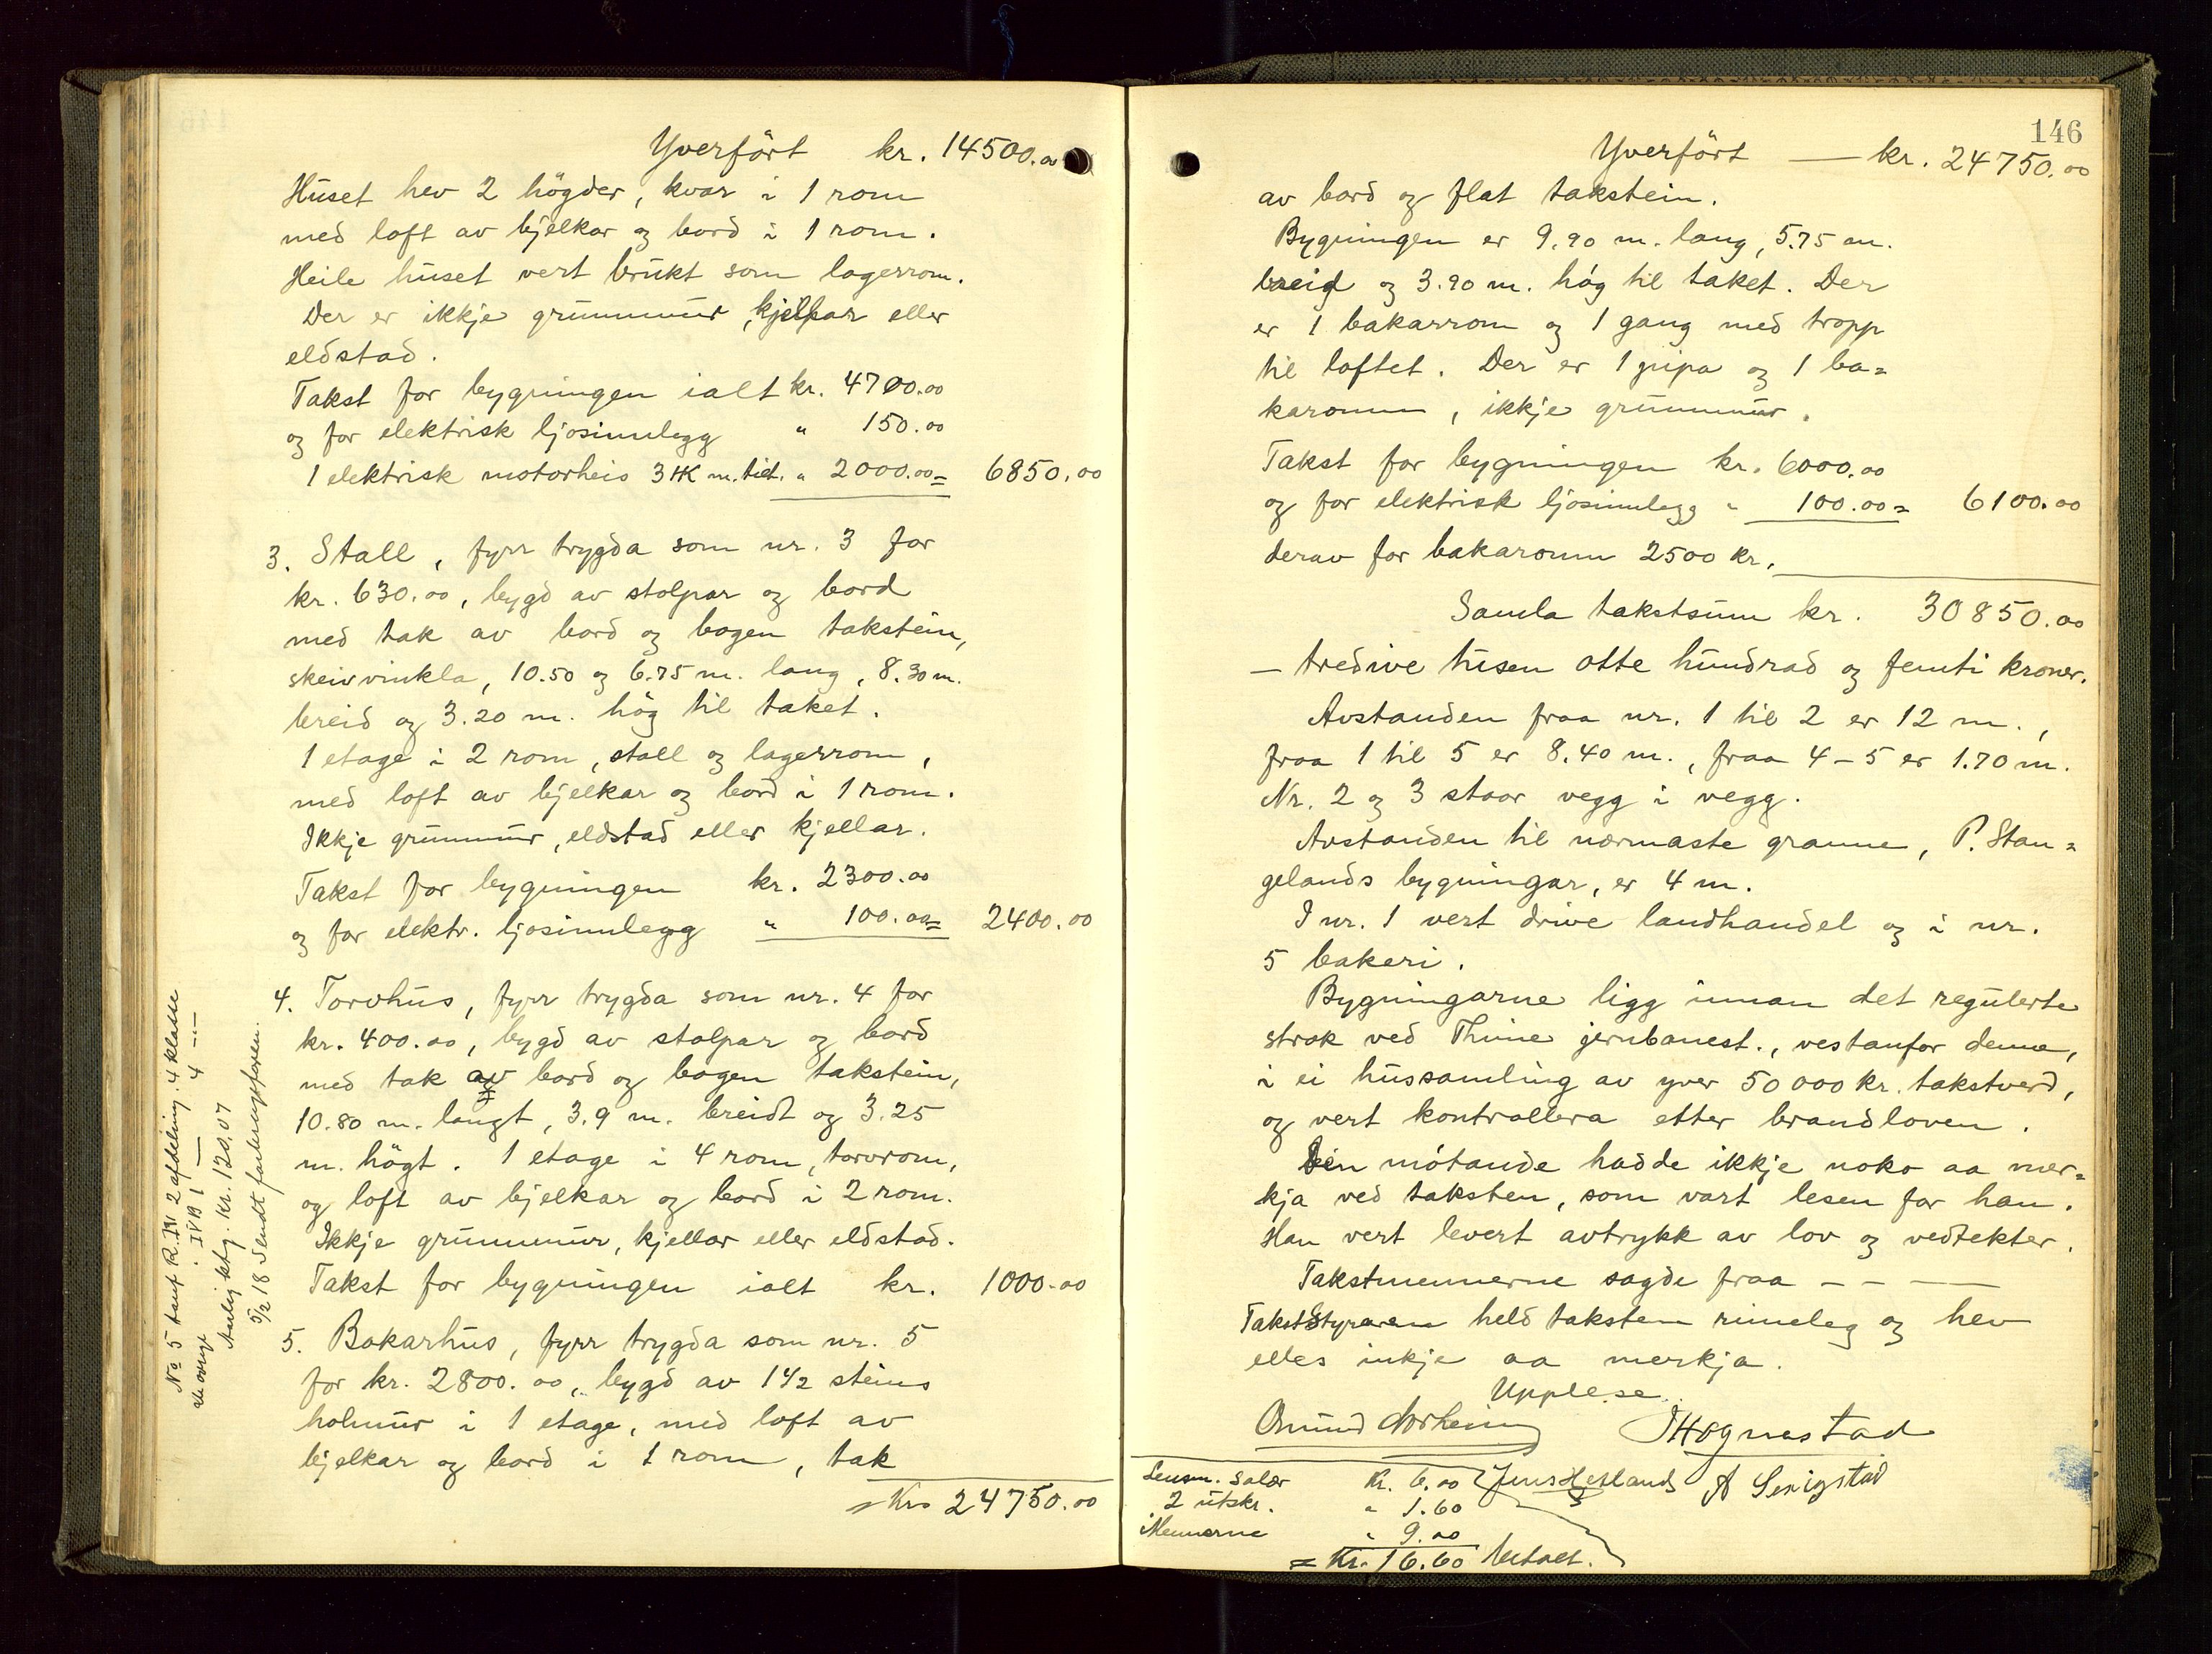 Yverført kr. 14500.00
Huset hev 2 högder, kvar i 1 rom
med loft av bjelkar og bord i 1 rom.
Heile huset vert brukt som lagerrom.
Der er ikkje grunnmur, kjellar eller
eldstad.
Takst for bygningen ialt kr. 4700.00
og for elektrisk ljosinnlegg " 150.00
1 elektrisk motorheis 3 HK m. " 2000.00 = 6850.00
3. Stall, fyrr trygda som nr. 3 for
kr. 630.00, bygd av stolpar og bord
med tak av bord og bogen takstein,
skeivvinkla, 10.50 og 6.75 m. lang, 8.30 m.
breid og 3.20 m. høg til taket.
1 etage i 2 rom, stall og lagerrom,
med loft av bjelkar og bord i 1 rom.
Ikkje grunnmur, eldstad eller kjellar.
Takst for bygningen kr. 2300.00
og for elektr. ljosinnlegg " 100.00 = 2400.00
4. Torvhus, fyrr trygda som nr. 4 for
kr. 400.00, bygd av stolpar og bord
med tak av bord og bogen takstein,
10.80 m. langt, 3.9 m. breidt og 3.25
m. høgt. 1 etage i 4 rom, torvrom,
og loft av bjelkar og bord i 2 rom.
Ikkje grunnmur, kjellar eller eldstad.
Takst for bygningen ialt kr. 1000.00
5. Bakarhus, fyrr trygda som nr. 5
for kr. 2800.00, bygd av 1 1/2 steins
holmur i 1 etage, med loft av
bjelkar og bord i 1 rom, tak
= Kr. 24750.00
No 5 R. IV 2 afdeling, 4 klasse
IVB 1 — 4 —"—
Kr. 120,07
5/2 18 Sendt
146
Yverført — kr. 24750.00
av bord og flat takstein.
Bygningen er 9.90 m. lang, 5.75 m.
breid og 3.90 m. høg til taket. Der
er 1 bakarrom og 1 gang med tropp
til loftet. Der er 1 pipa og 1 ba=
karomn, ikkje grunnmur.
Takst for bygningen kr. 6000.00
og for elektrisk ljosinnlegg " 100.00 = 6100.00
derav for bakaromn 2500 kr.
Samla takstsum kr. 30850.00
— tredive tusen otte hundrad og femti kroner.
Avstanden fraa nr. 1 til 2 er 12 m.,
fraa 1 til 5 er 8.40 m., fraa 4-5 er 1.70 m.
Nr. 2 og 3 staar vegg i vegg.
Avstanden til nærmaste granne, P. Stan=
gelands bygningar, er 4 m.
I nr. 1 vert drive landhandel og i nr.
5 bakeri.
Bygningarne ligg innan det regulerte
strok ved Thime jernbanest., vestanfor denne,
i ei hussamling av yver 50000 kr. takstverd,
og vert kontrollera etter brandloven.
Den møtande hadde ikkje noko aa mer=
kja ved taksten, som vart lesen for han.
Han vert levert avtrykk av lov og vedtekter.
Takstmennerne sagde fraa — — —
Takststyraren held taksten rimeleg og hev
elles inkje aa merkja.
Upplese.
Omund Norheim Høgnestad
Lensm. salær Kr. 6.00 Jens Hetland A Serigstad
2 utskr. " 1.60
Mennerne " 9.00
= Kr. 16.60 betalt.